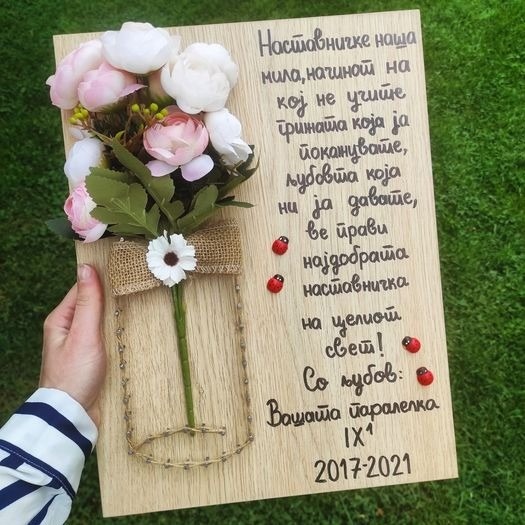 Наставничке наша
мила, начинот на
кој не учите
грижата која ја
покажувате,
љубовта која
ни ја давате,
ве прави
најдобрата
наставничка
на целиот
свет!
Со љубов:
Вашата паралелка
IX¹
2017-2021